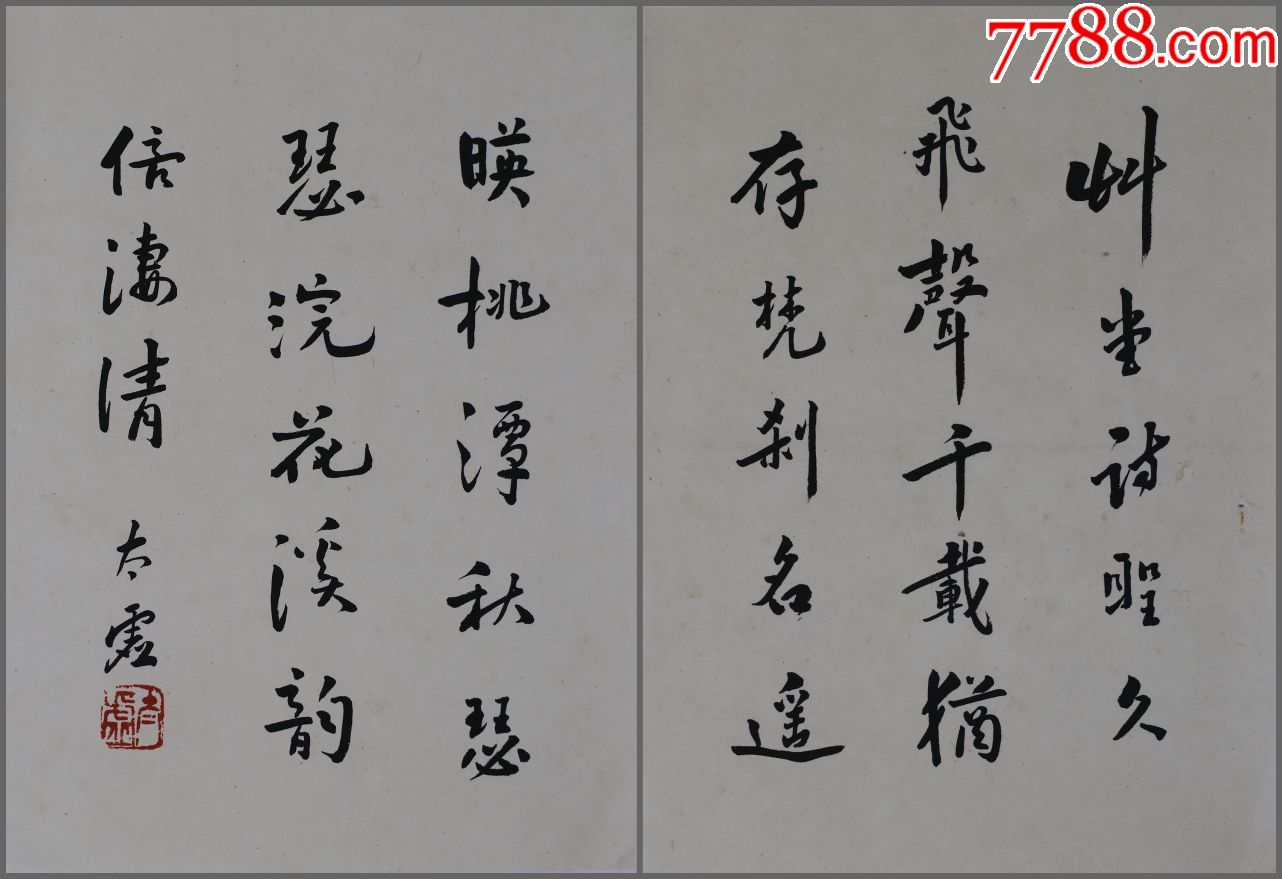 7788.com
艸堂詩聖久
飛聲千載猶
存梵刹名遥
暎桃潭秋瑟
瑟浣花溪韵
倍淒清
太虛
太虛